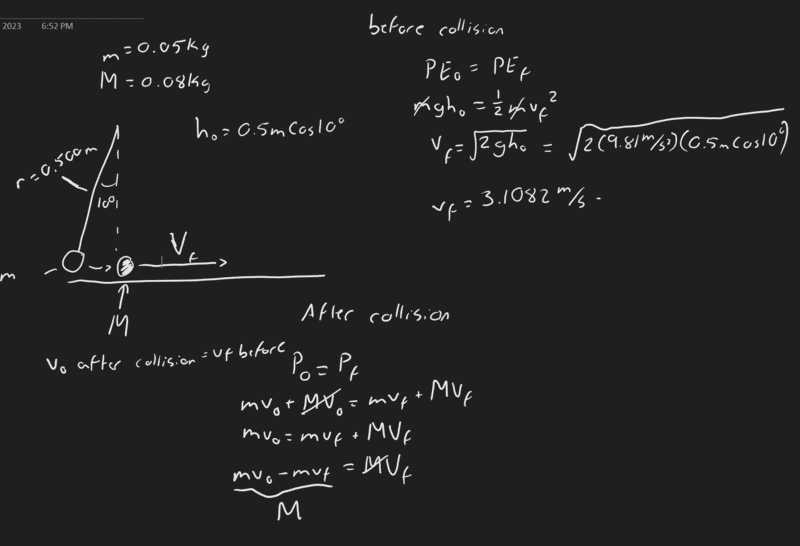 2023 6:52 PM
m = 0.05kg
M = 0.08kg
h₀ = 0.5m cos10°
r = 0.500m
10°
V_f
m
M
before collision
PE₀ = PE_f
mgh₀ = ½ mv_f²
v_f = √2gh₀ = √2(9.81 m/s²)(0.5m cos10°)
v_f = 3.1082 m/s
After collision
v₀ after collision = vf before
P₀ = P_f
mv₀ + MV₀ = mv_f + MV_f
mv₀ = mv_f + MV_f
mv₀ - mv_f = MV_f
M